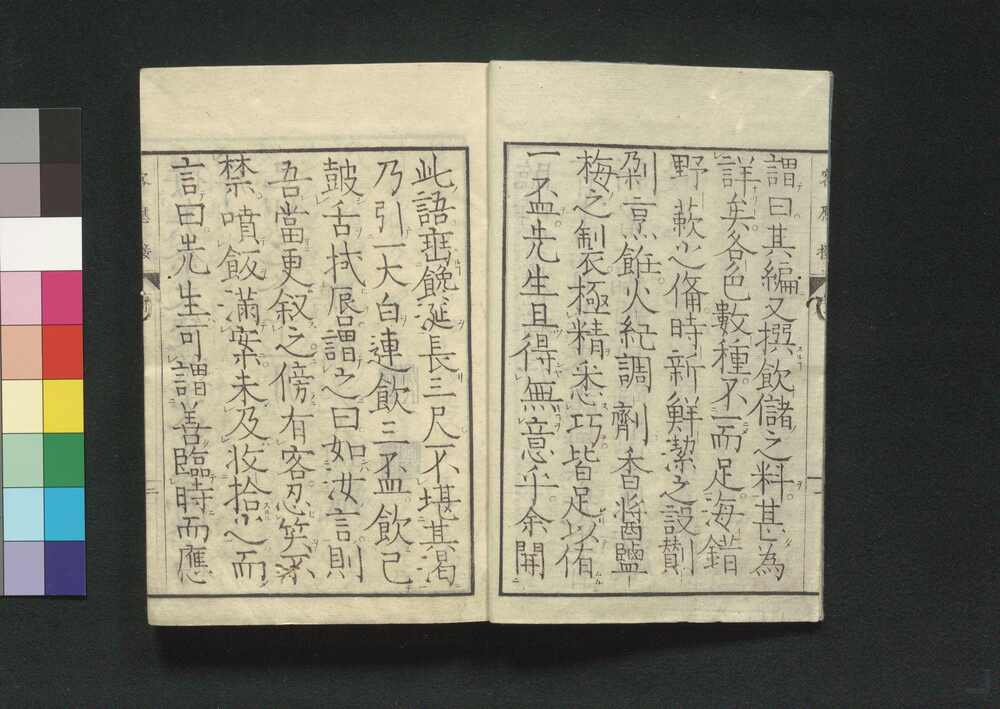 謂曰其編又撰飲儲之料甚為
詳矣各色數種不一而足海錯
野蔌之備時新鮮潔之設割
剁烹飪火紀調劑香醬鹽
梅之製極精悉巧皆足以侑
一盃先生且得無意乎余聞
此語饞涎長三尺不堪其渴
乃引一大白連飲三盃飲已
鼓舌拭唇謂之曰如汝言則
吾當更叙之傍有客忍笑不
禁噴飯滿案未及收拾之而
言曰先生可謂善臨時而應